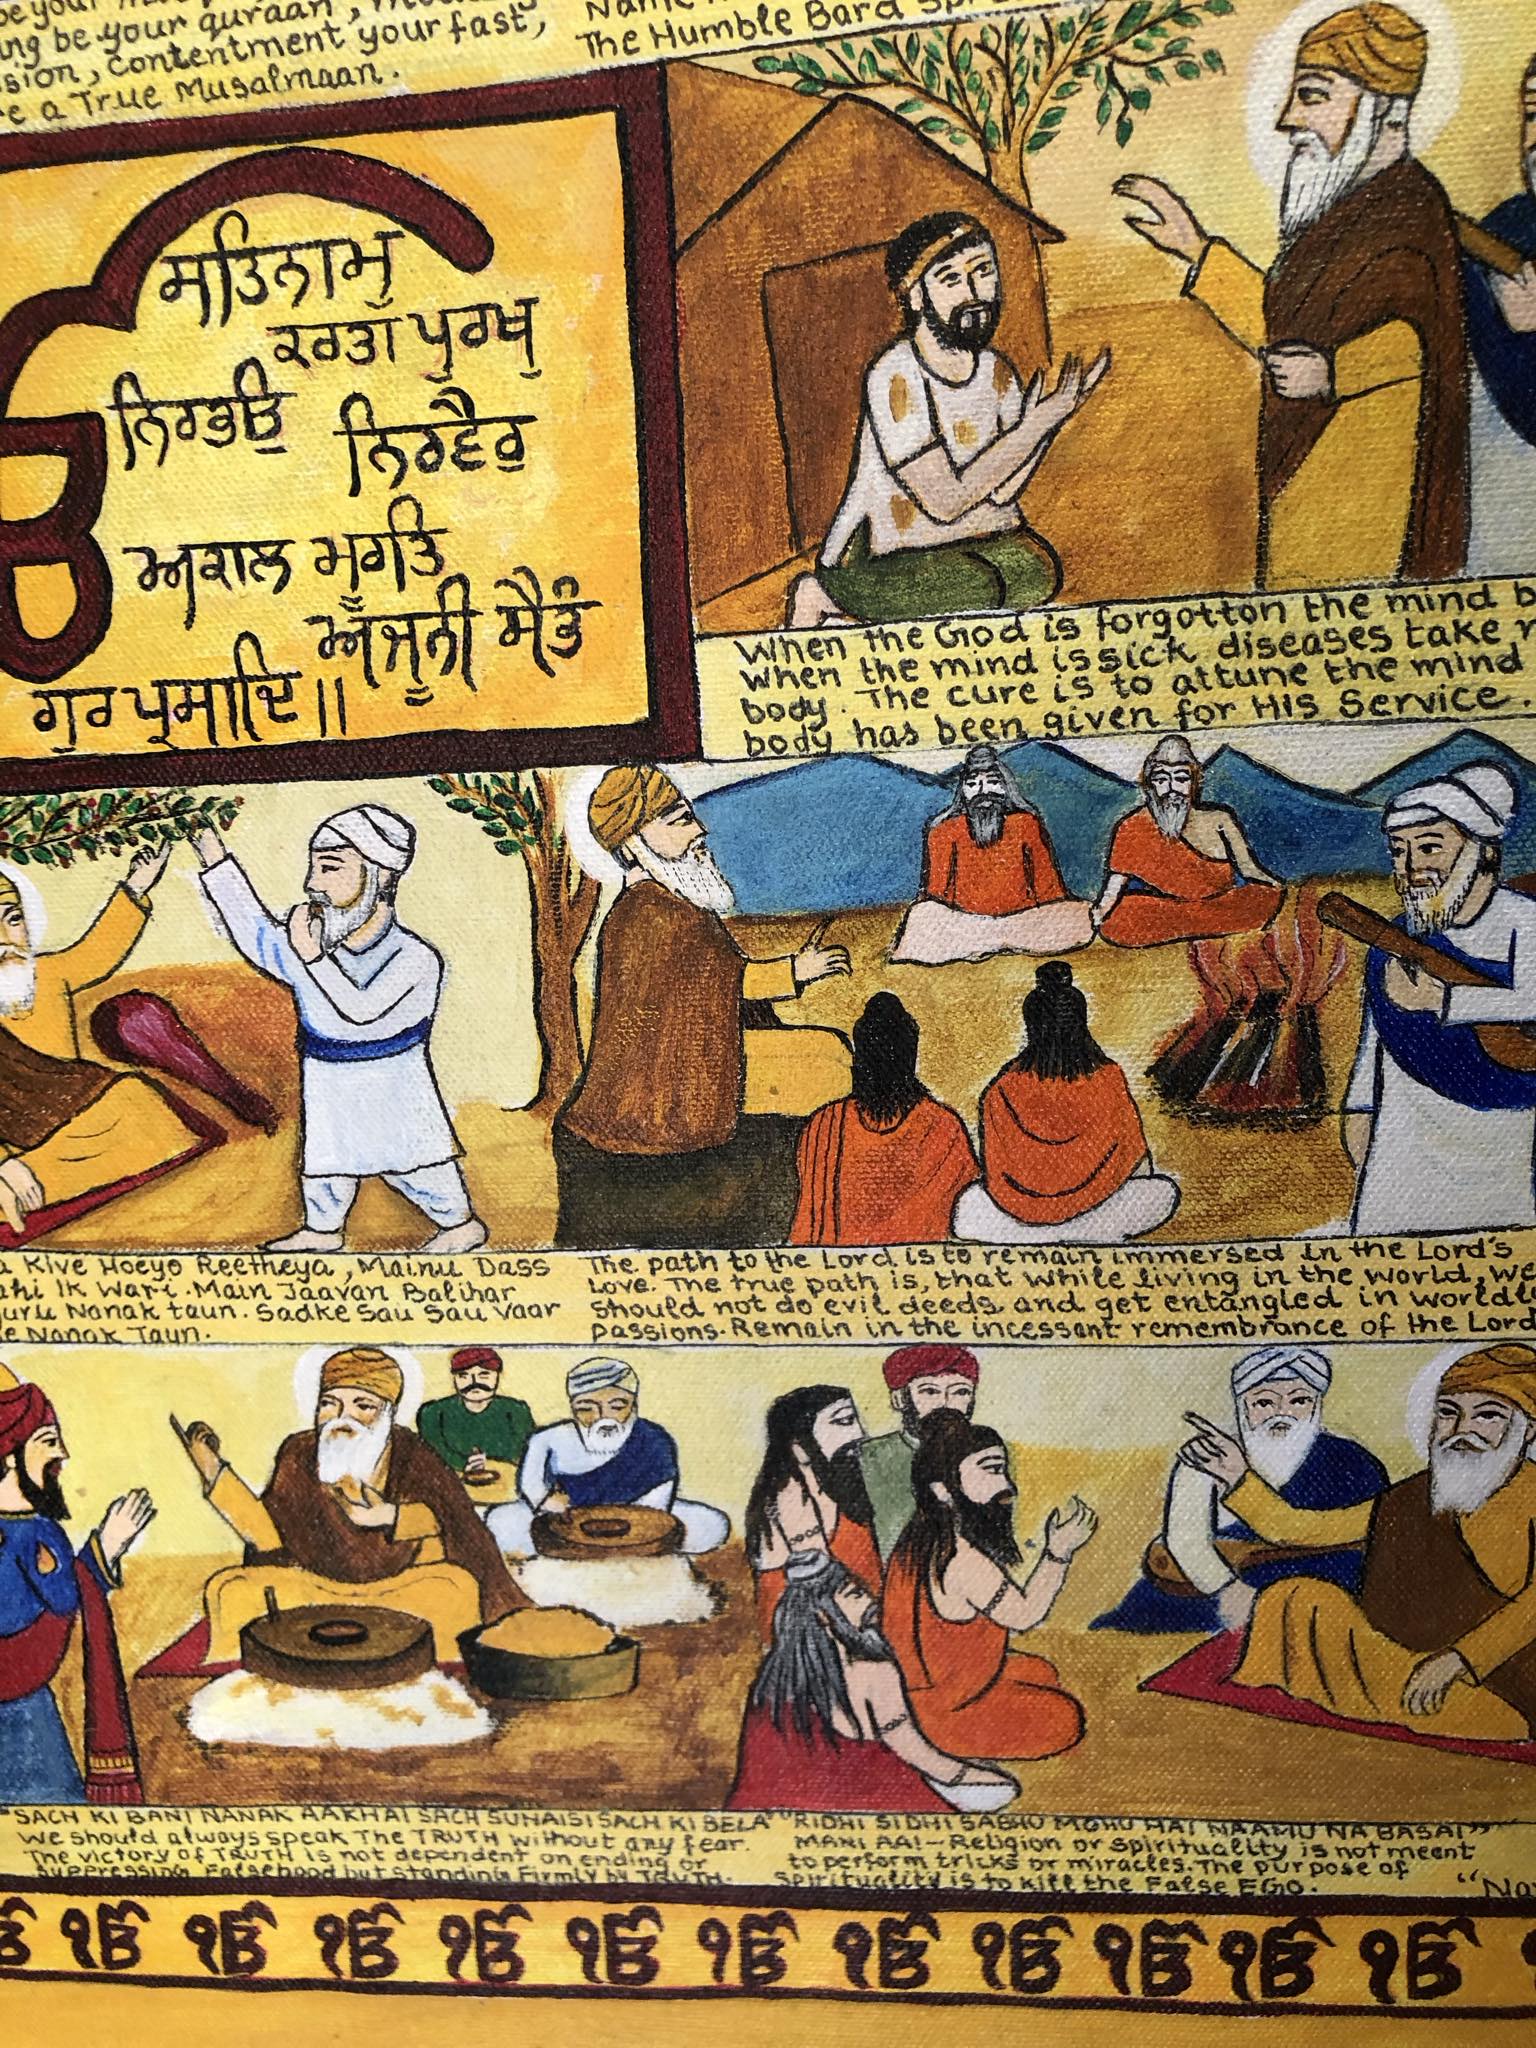 be your
ing be your quraan,
sion, contentment your fast,
e a True Musalmaan.
Name
The Humble Bard
ਸਤਿਨਾਮੁ
ਕਰਤਾ ਪੁਰਖੁ
ਨਿਰਭਉ
ਨਿਰਵੈਰੁ
ਅਕਾਲ ਮੂਰਤਿ
ਅਜੂਨੀ ਸੈਭੰ
ਗੁਰ ਪ੍ਰਸਾਦਿ॥
When the God is forgotton the mind b
When the mind is sick diseases take r
body. The cure is to attune the mind
body has been given for His Service.
a Kive Hoeyo Reetheya, Mainu Dass
ahi Ik Wari. Main Jaavan Balihar
uru Nanak taun. Sadke Sau Sau Vaar
e Nanak Taun.
The path to the Lord is to remain immersed in the Lord's
Love. The true path is, that while living in the world, we
should not do evil deeds and get entangled in worldly
passions. Remain in the incessant remembrance of the Lord
"SACH KI BANI NANAK AAKHAI SACH SUNAISI SACH KI BELA"
We should always speak The TRUTH without any fear.
The victory of TRUTH is not dependent on ending or
suppressing Falsehood but Standing Firmly by TRUTH.
"RIDHI SIDHI SABHU MOHU HAI NAAMU NA BASAI"
MANI AAI - Religion or Spirituality is not meant
to perform tricks or miracles. The purpose of
Spirituality is to kill the False EGO.
ੴ ੴ ੴ ੴ ੴ ੴ ੴ ੴ ੴ ੴ ੴ